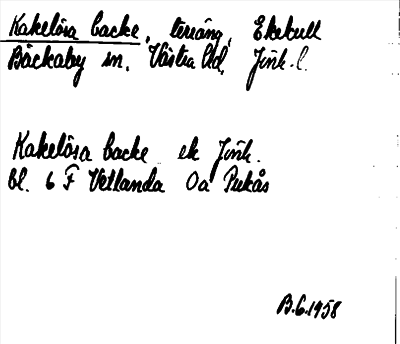 Kakelösa backe, terräng, Ekekull
Bäckaby sn. Västra hd, Jönk. l.
Kakelösa backe ek Jönk.
bl. 6 F Vetlanda Oa Pukås
B.G.1958